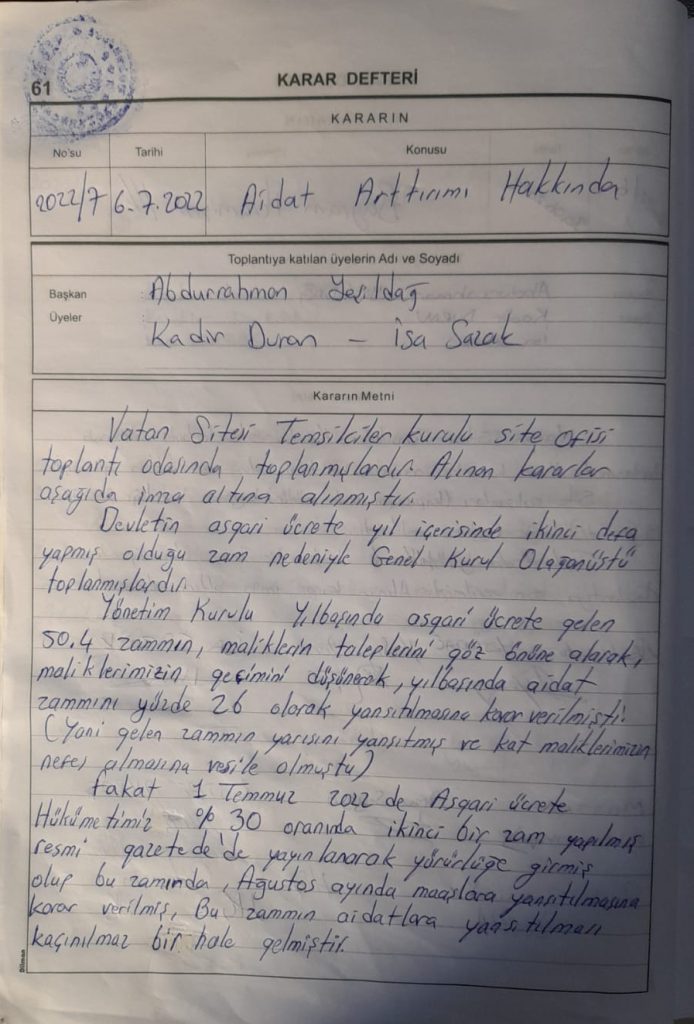 61
KARAR DEFTERİ
KARARIN
No'su Tarihi Konusu
2022/7 6.7.2022 Aidat Arttırımı Hakkında
Toplantıya katılan üyelerin Adı ve Soyadı
Başkan Abdurrahman Yeşildağ
Üyeler Kadir Duran - İsa Sazak
Kararın Metni
Vatan Sitesi Temsilciler kurulu site ofisi
toplantı odasında toplanmışlardır. Alınan kararlar
aşağıda imza altına alınmıştır.
Devletin asgari ücrete yıl içerisinde ikinci defa
yapmış olduğu zam nedeniyle Genel Kurul Olağanüstü
toplanmışlardır.
Yönetim Kurulu Yılbaşında asgari ücrete gelen
50.4 zammın, maliklerin taleplerini göz önüne alarak,
maliklerimizin geçimini düşünerek, yılbaşında aidat
zammını yüzde 26 olarak yansıtılmasına karar verilmişti.
(Yani gelen zammın yarısını yansıtmış ve kat maliklerimizin
nefes almasına vesile olmuştu)
Fakat 1 Temmuz 2022 de Asgari ücrete
Hükümetimiz %30 oranında ikinci bir zam yapılmış
resmi gazetede'de yayınlanarak yürürlüğe girmiş
olup bu zamında, Ağustos ayında maaşlara yansıtılmasına
karar verilmiş, Bu zammın aidatlara yansıtılması
kaçınılmaz bir hale gelmiştir.
Dilman